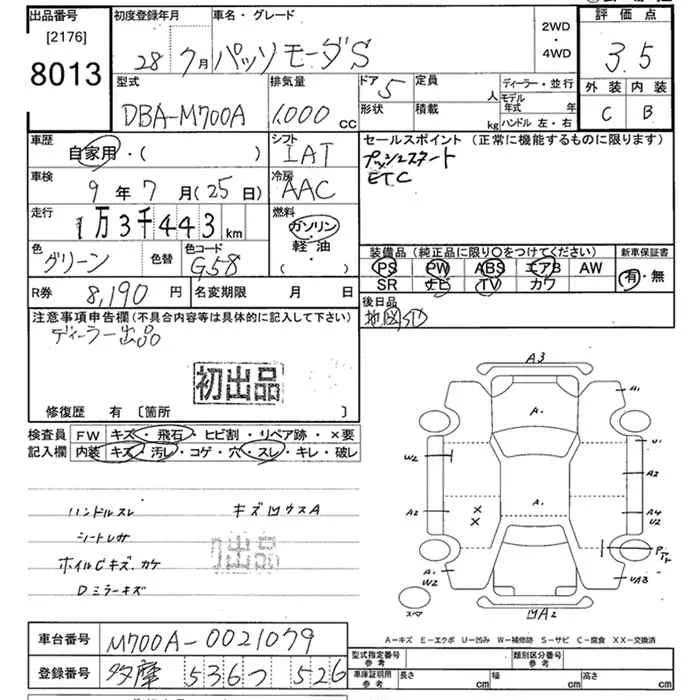 出品番号 初度登録年月 車名・グレード 2WD ・ 4WD 評価点
[2176]
8013
28 7月 パッソ モーダS 3.5
外装 内装
C B
型式 排気量 ドア 定員 ディーラー・並行
DBA-M700A 1,000 CC 5 人 モデル年式 年
形状 積載 kg ハンドル 左・右
車歴 シフト セールスポイント(正常に機能するものに限ります)
自家用・( ) IAT プッシュスタート
ETC
車検 冷房
9年7月(25日) AAC
走行 燃料
1万3千443 km ガソリン
・
軽油
・
( )
色 色替 色コード
グリーン G58
装備品(純正品に限り○をつけてください) 新車保証書
PS PW ABS エアB AW 有・無
SR ナビ TV カワ
R券 8,190円 名変期限 月 日
後日品
注意事項申告欄(不具合内容等は具体的に記入して下さい)
ディーラー出品
初出品
修復歴 有 [箇所 ]
検査員 FW キズ・飛石・ヒビ割・リペア跡・×要
記入欄 内装 キズ・汚レ・コゲ・穴・スレ・キレ・破レ
ハンドルスレ キズ凹ウスA
シートレザ
ホイルCキズ.カケ
Dミラーキズ
出品
A3
A.
A.
A.
W2
A2
A2
A4
U2
×
×
A.
W2
UA3
スペア
凹A2
A-キズ E-エクボ U-凹み W-補修跡 S-サビ C-腐食 XX-交換済
車台番号 M700A-0021079
登録番号 多摩 536つ 526
型式指定番号 参考 類別区分番号 参考
車庫証明用 参考 長さ cm 幅 cm 高さ cm